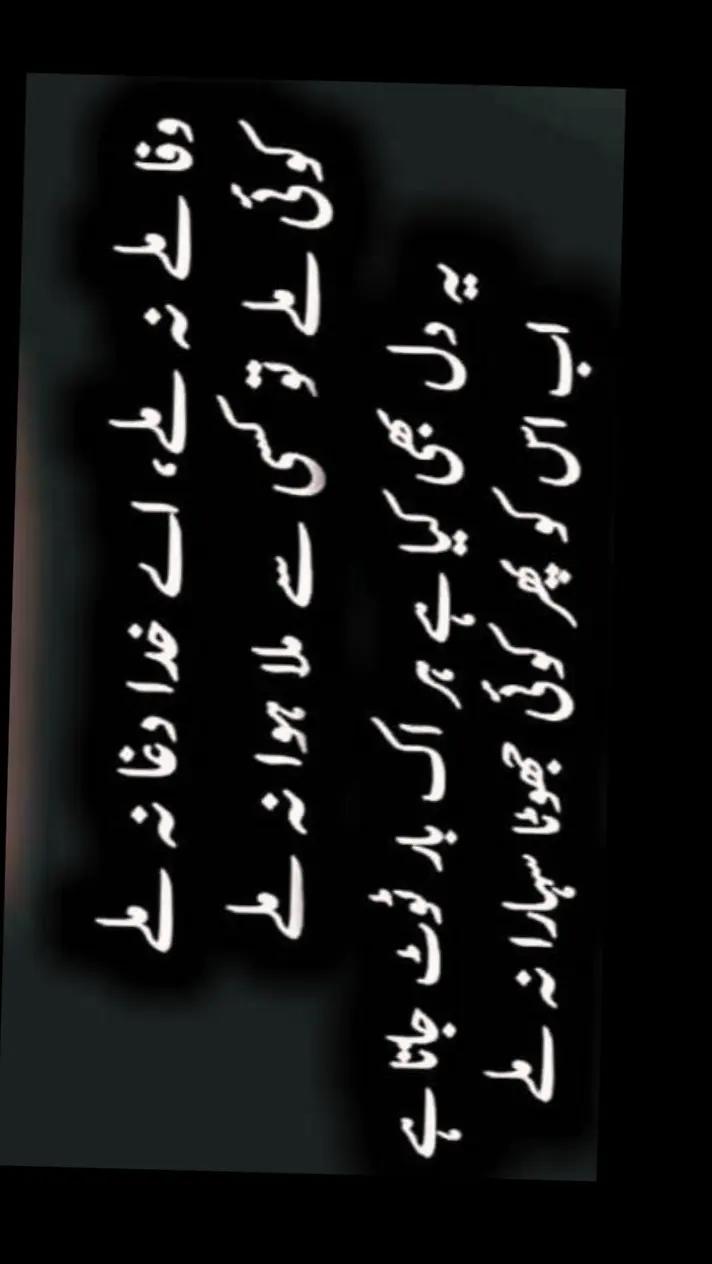 وفا ملے نہ ملے، اے خدا دغا نہ ملے
کوئی ملے تو کسی سے ملا ہوا نہ ملے
یہ دل بھی کیا ہے ہر اک بار ٹوٹ جاتا ہے
اب اس کو پھر کوئی جھوٹا سہارا نہ ملے